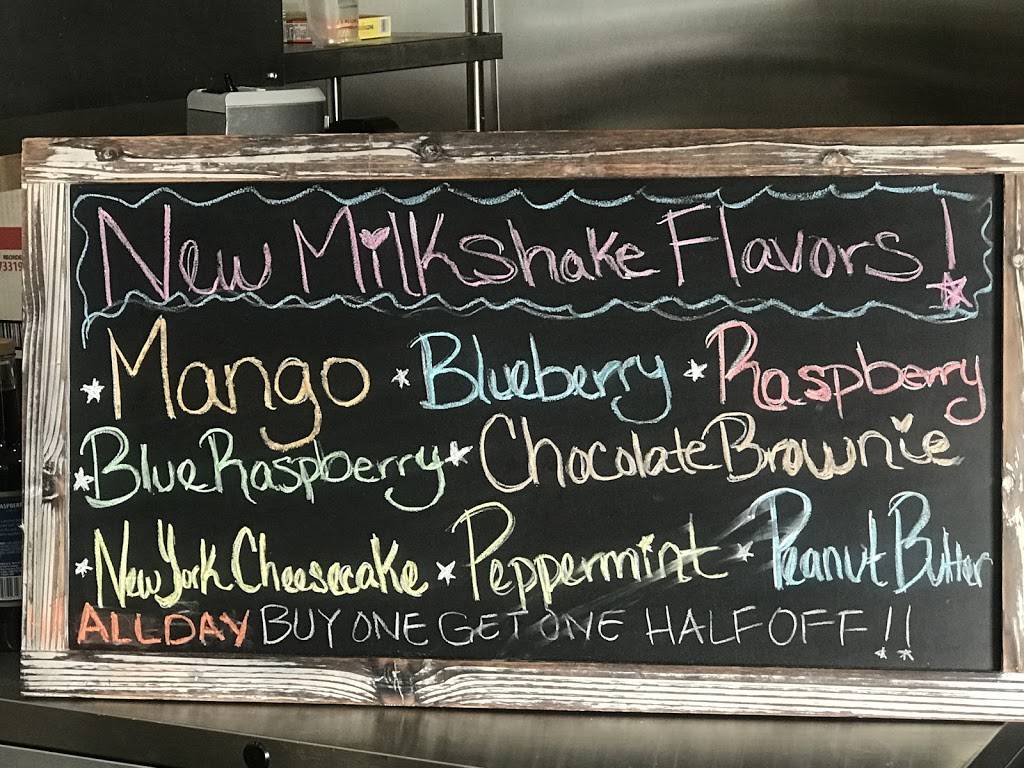 New Milkshake Flavors!
Mango Blueberry Raspberry
Blue Raspberry Chocolate Brownie
New York Cheesecake Peppermint Peanut Butter
ALL DAY BUY ONE GET ONE HALF OFF!!
7319